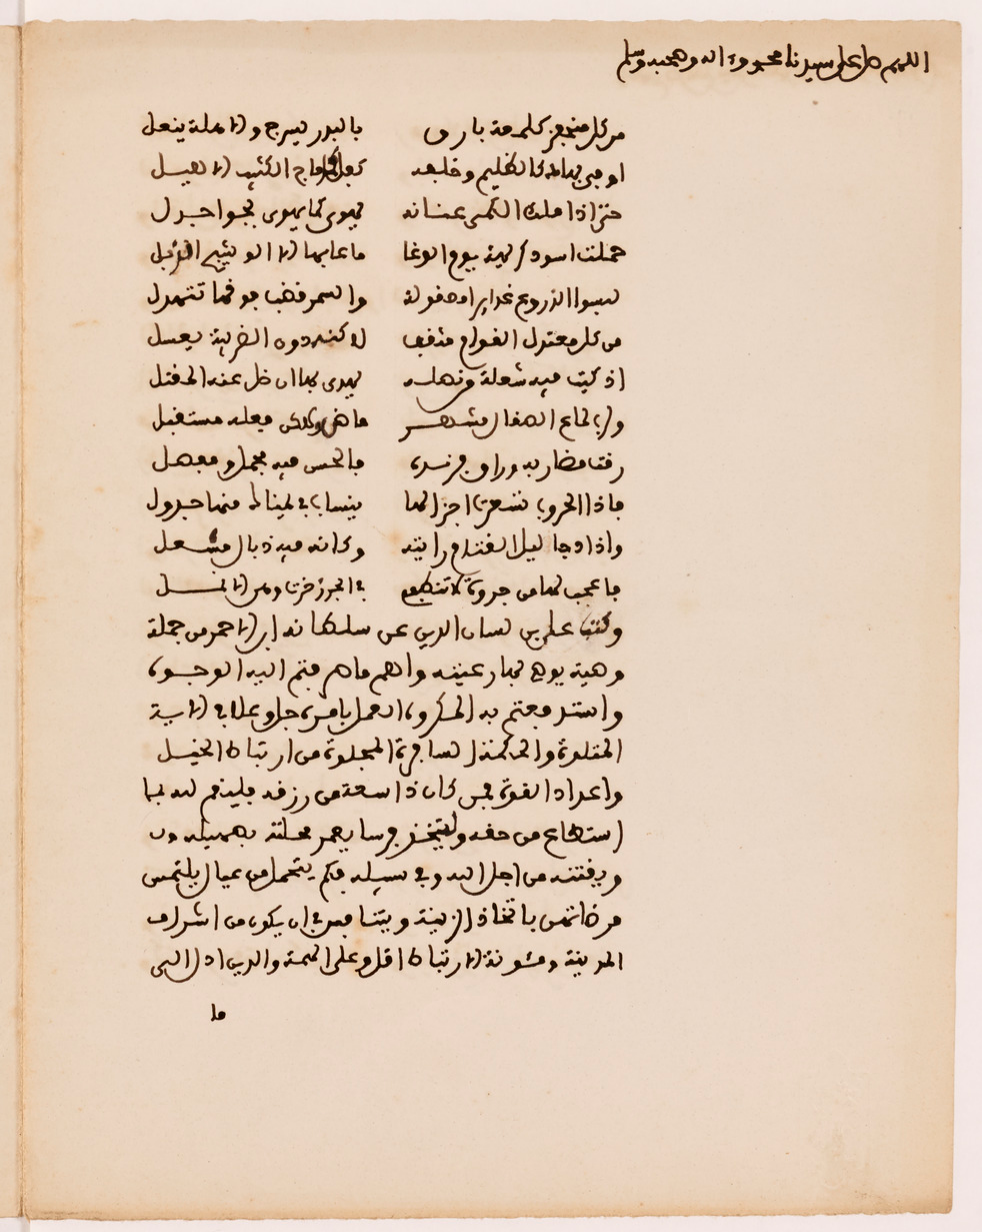 اللهم صل على سيدنا محمد وءاله وصحبه وسلم
من كل منحفز كلمعة بارق بالبدر يسرج والاهلة ينعل
اوفى بهاد كالظليم وخلفه كفل كماج الكثيب الاهيل
حتى اذا ملك الكمي عنانه يهوي كما يهوي بجو اجدل
حملت اسود كريهة يوم الوغا ما غابها الا الوشيج الذبل
لبسوا الدروع غدايرا مصقولة والسمر قضب فوقها تتهدل
من كل معتدل القوام مثقف لاكنه دون الضريبة يعسل
اذكيت فيه شعلة من نصله يهدى بها ان ضل عنه المقتل
ولرب لماع الصقال مشهر ماض ولكن فعله مستقبل
رقت مضاربه وراق فرنده فالحسن فيه مجمل ومفصل
فاذا الحروب تسعرت اجزالها ينساب في يمناك منها جدول
واذا دجا ليل القتام رايته وكانه فيه ذبال مشعل
فاعجب لها من جذوة لا تنطفي في ابحر زخرت وهن الانمل
وكتب على بن لسان الدين عن سلطانه ابن الاحمر من جملة
وصية يوصي بها رعيته واهم ما صرفتم اليه الوجوه
واستدفعتم به المكروه العمل بامره جل وعلا في الاية
المتلوة والحكمة السافرة المجلوة من ارتباط الخيل
واعداد القوة فمن كان ذا سعة من رزقه فليقم لله بما
استطاع من حقه وليتخذ فرسا يعمر محلته بصهيله
ويقتنه من اجل الله وفي سبيله فكم يتحمل من عيال يلتمس
مرضاتهن باتخاذ الزينة ويتنافس في ان يكون من اشراف
المدينة ومئونة الارتباط اقل وعلى الهمة والدين ادل الى
ما